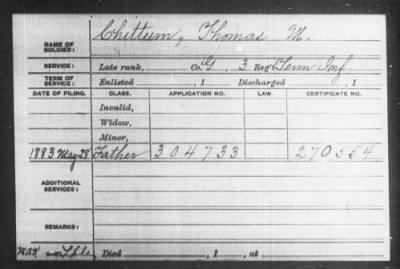 NAME OF SOLDIER: Chittum, Thomas M.
SERVICE: Late rank, Co. G, 3 Reg't Tenn Inf
TERM OF SERVICE: Enlisted , 1 Discharged , 1
DATE OF FILING. CLASS. APPLICATION NO. LAW. CERTIFICATE NO.
Invalid,
Widow,
Minor,
1883 May 28 Father 304733 270554
ADDITIONAL SERVICES:
REMARKS:
Died , 1 , at